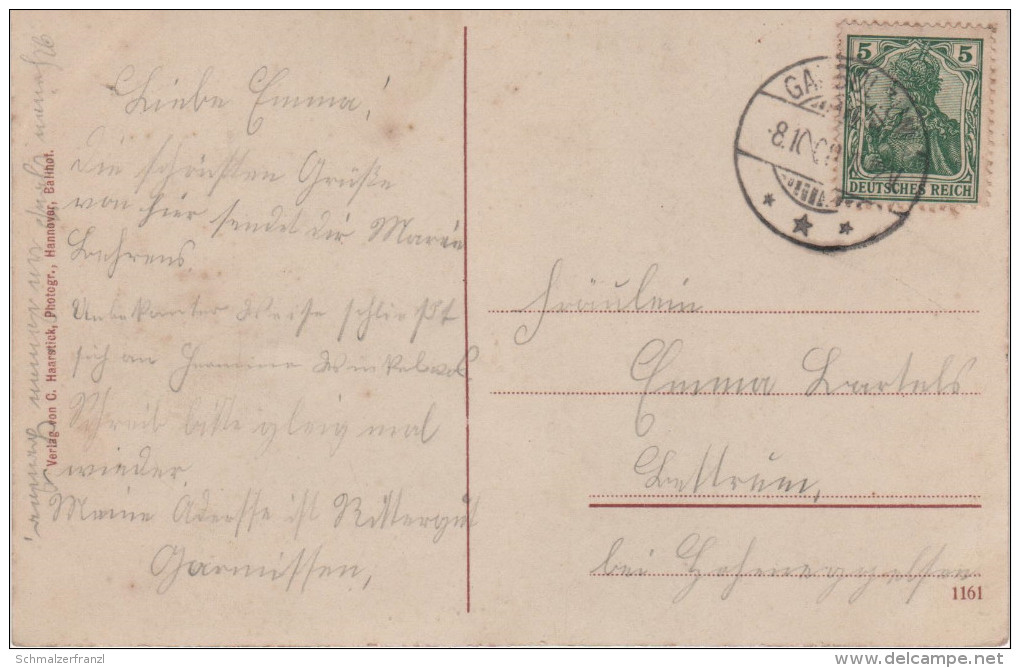 Liebe Emma!
Die schönsten Grüße
von hier sendet dir Marie
Bahrens
Unbekanter Weise schließt
sich an Hermine Winkelvoß.
Schreib bitte gleig mal
wieder.
Meine Adresse ist Rittergut
Garmissen,
Verlag von C. Haarstick, Photogr., Hannover, Ballhof.
5 5
DEUTSCHES REICH
8.10
Fräulein
Emma Bartels
Bettrum,
bei Hoheneggelsen
1161
Schmalzerfranzl
delcampe.net